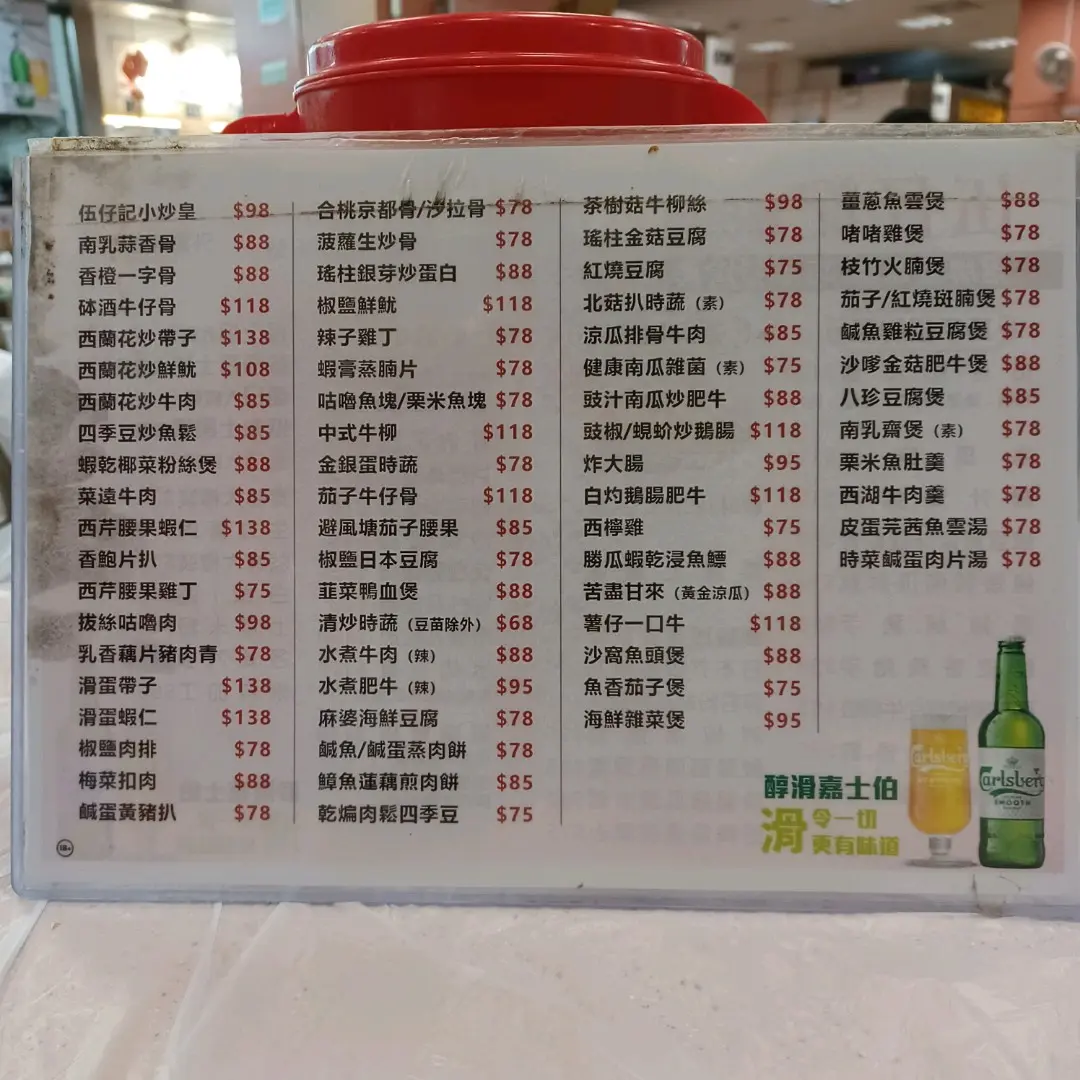 伍仔記小炒皇 $98
南乳蒜香骨 $88
香橙一字骨 $88
砵酒牛仔骨 $118
西蘭花炒帶子 $138
西蘭花炒鮮魷 $108
西蘭花炒牛肉 $85
四季豆炒魚鬆 $85
蝦乾椰菜粉絲煲 $88
菜遠牛肉 $85
西芹腰果蝦仁 $138
香鮑片扒 $85
西芹腰果雞丁 $75
拔絲咕嚕肉 $98
乳香藕片豬肉青 $78
滑蛋帶子 $138
滑蛋蝦仁 $138
椒鹽肉排 $78
梅菜扣肉 $88
鹹蛋黃豬扒 $78
18+
合桃京都骨/沙拉骨 $78
菠蘿生炒骨 $78
瑤柱銀芽炒蛋白 $88
椒鹽鮮魷 $118
辣子雞丁 $78
蝦膏蒸腩片 $78
咕嚕魚塊/栗米魚塊 $78
中式牛柳 $118
金銀蛋時蔬 $78
茄子牛仔骨 $118
避風塘茄子腰果 $85
椒鹽日本豆腐 $78
韮菜鴨血煲 $88
清炒時蔬 (豆苗除外) $68
水煮牛肉 (辣) $88
水煮肥牛 (辣) $95
麻婆海鮮豆腐 $78
鹹魚/鹹蛋蒸肉餅 $78
鱆魚蓮藕煎肉餅 $85
乾煸肉鬆四季豆 $75
茶樹菇牛柳絲 $98
瑤柱金菇豆腐 $78
紅燒豆腐 $75
北菇扒時蔬 (素) $78
涼瓜排骨牛肉 $85
健康南瓜雜菌 (素) $75
豉汁南瓜炒肥牛 $88
豉椒/蜆蚧炒鵝腸 $118
炸大腸 $95
白灼鵝腸肥牛 $118
西檸雞 $75
勝瓜蝦乾浸魚鰾 $88
苦盡甘來 (黃金涼瓜) $88
薯仔一口牛 $118
沙窩魚頭煲 $88
魚香茄子煲 $75
海鮮雜菜煲 $95
薑蔥魚雲煲 $88
啫啫雞煲 $78
枝竹火腩煲 $78
茄子/紅燒斑腩煲 $78
鹹魚雞粒豆腐煲 $78
沙嗲金菇肥牛煲 $88
八珍豆腐煲 $85
南乳齋煲 (素) $78
栗米魚肚羹 $78
西湖牛肉羹 $78
皮蛋芫茜魚雲湯 $78
時菜鹹蛋肉片湯 $78
醇滑嘉士伯
滑 令一切
更有味道
Carlsberg
Carlsberg
SMOOTH